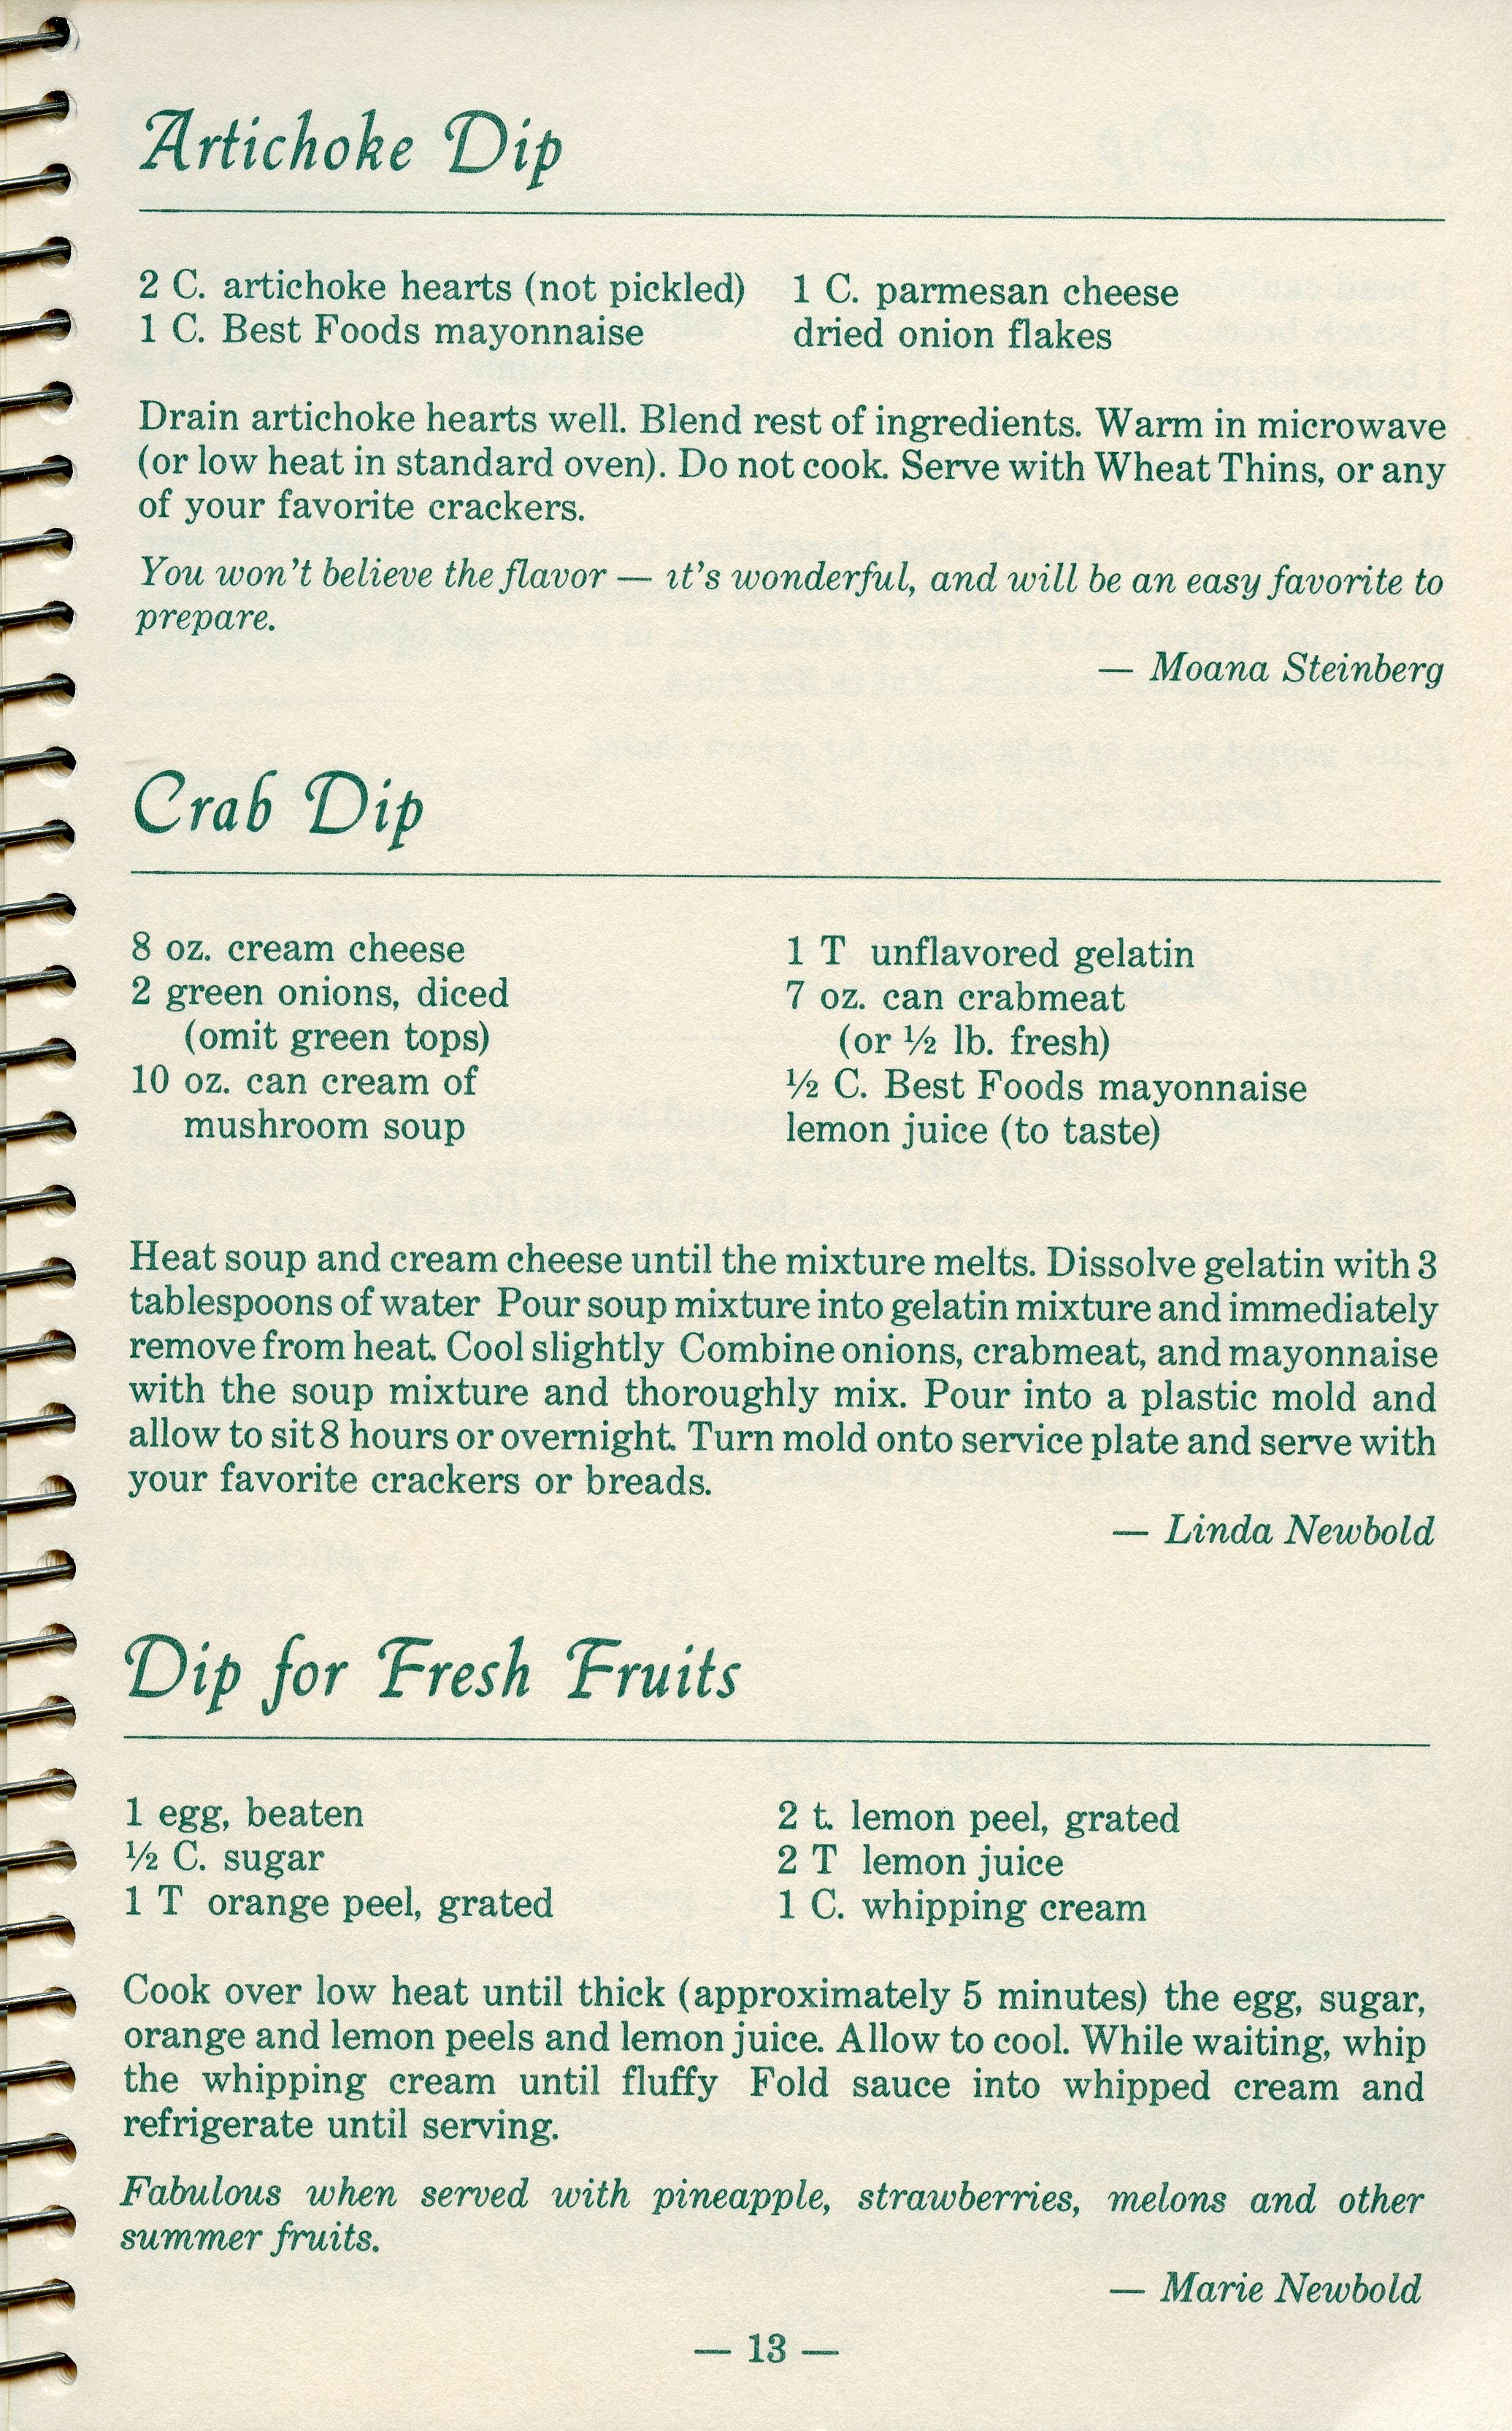 Artichoke Dip
2 C. artichoke hearts (not pickled)
1 C. Best Foods mayonnaise
1 C. parmesan cheese
dried onion flakes
Drain artichoke hearts well. Blend rest of ingredients. Warm in microwave
(or low heat in standard oven). Do not cook. Serve with Wheat Thins, or any
of your favorite crackers.
You won't believe the flavor — it's wonderful, and will be an easy favorite to
prepare.
— Moana Steinberg
Crab Dip
8 oz. cream cheese
2 green onions, diced
(omit green tops)
10 oz. can cream of
mushroom soup
1 T unflavored gelatin
7 oz. can crabmeat
(or ½ lb. fresh)
½ C. Best Foods mayonnaise
lemon juice (to taste)
Heat soup and cream cheese until the mixture melts. Dissolve gelatin with 3
tablespoons of water Pour soup mixture into gelatin mixture and immediately
remove from heat. Cool slightly Combine onions, crabmeat, and mayonnaise
with the soup mixture and thoroughly mix. Pour into a plastic mold and
allow to sit 8 hours or overnight. Turn mold onto service plate and serve with
your favorite crackers or breads.
— Linda Newbold
Dip for Fresh Fruits
1 egg, beaten
½ C. sugar
1 T orange peel, grated
2 t. lemon peel, grated
2 T lemon juice
1 C. whipping cream
Cook over low heat until thick (approximately 5 minutes) the egg, sugar,
orange and lemon peels and lemon juice. Allow to cool. While waiting, whip
the whipping cream until fluffy Fold sauce into whipped cream and
refrigerate until serving.
Fabulous when served with pineapple, strawberries, melons and other
summer fruits.
— Marie Newbold
— 13 —